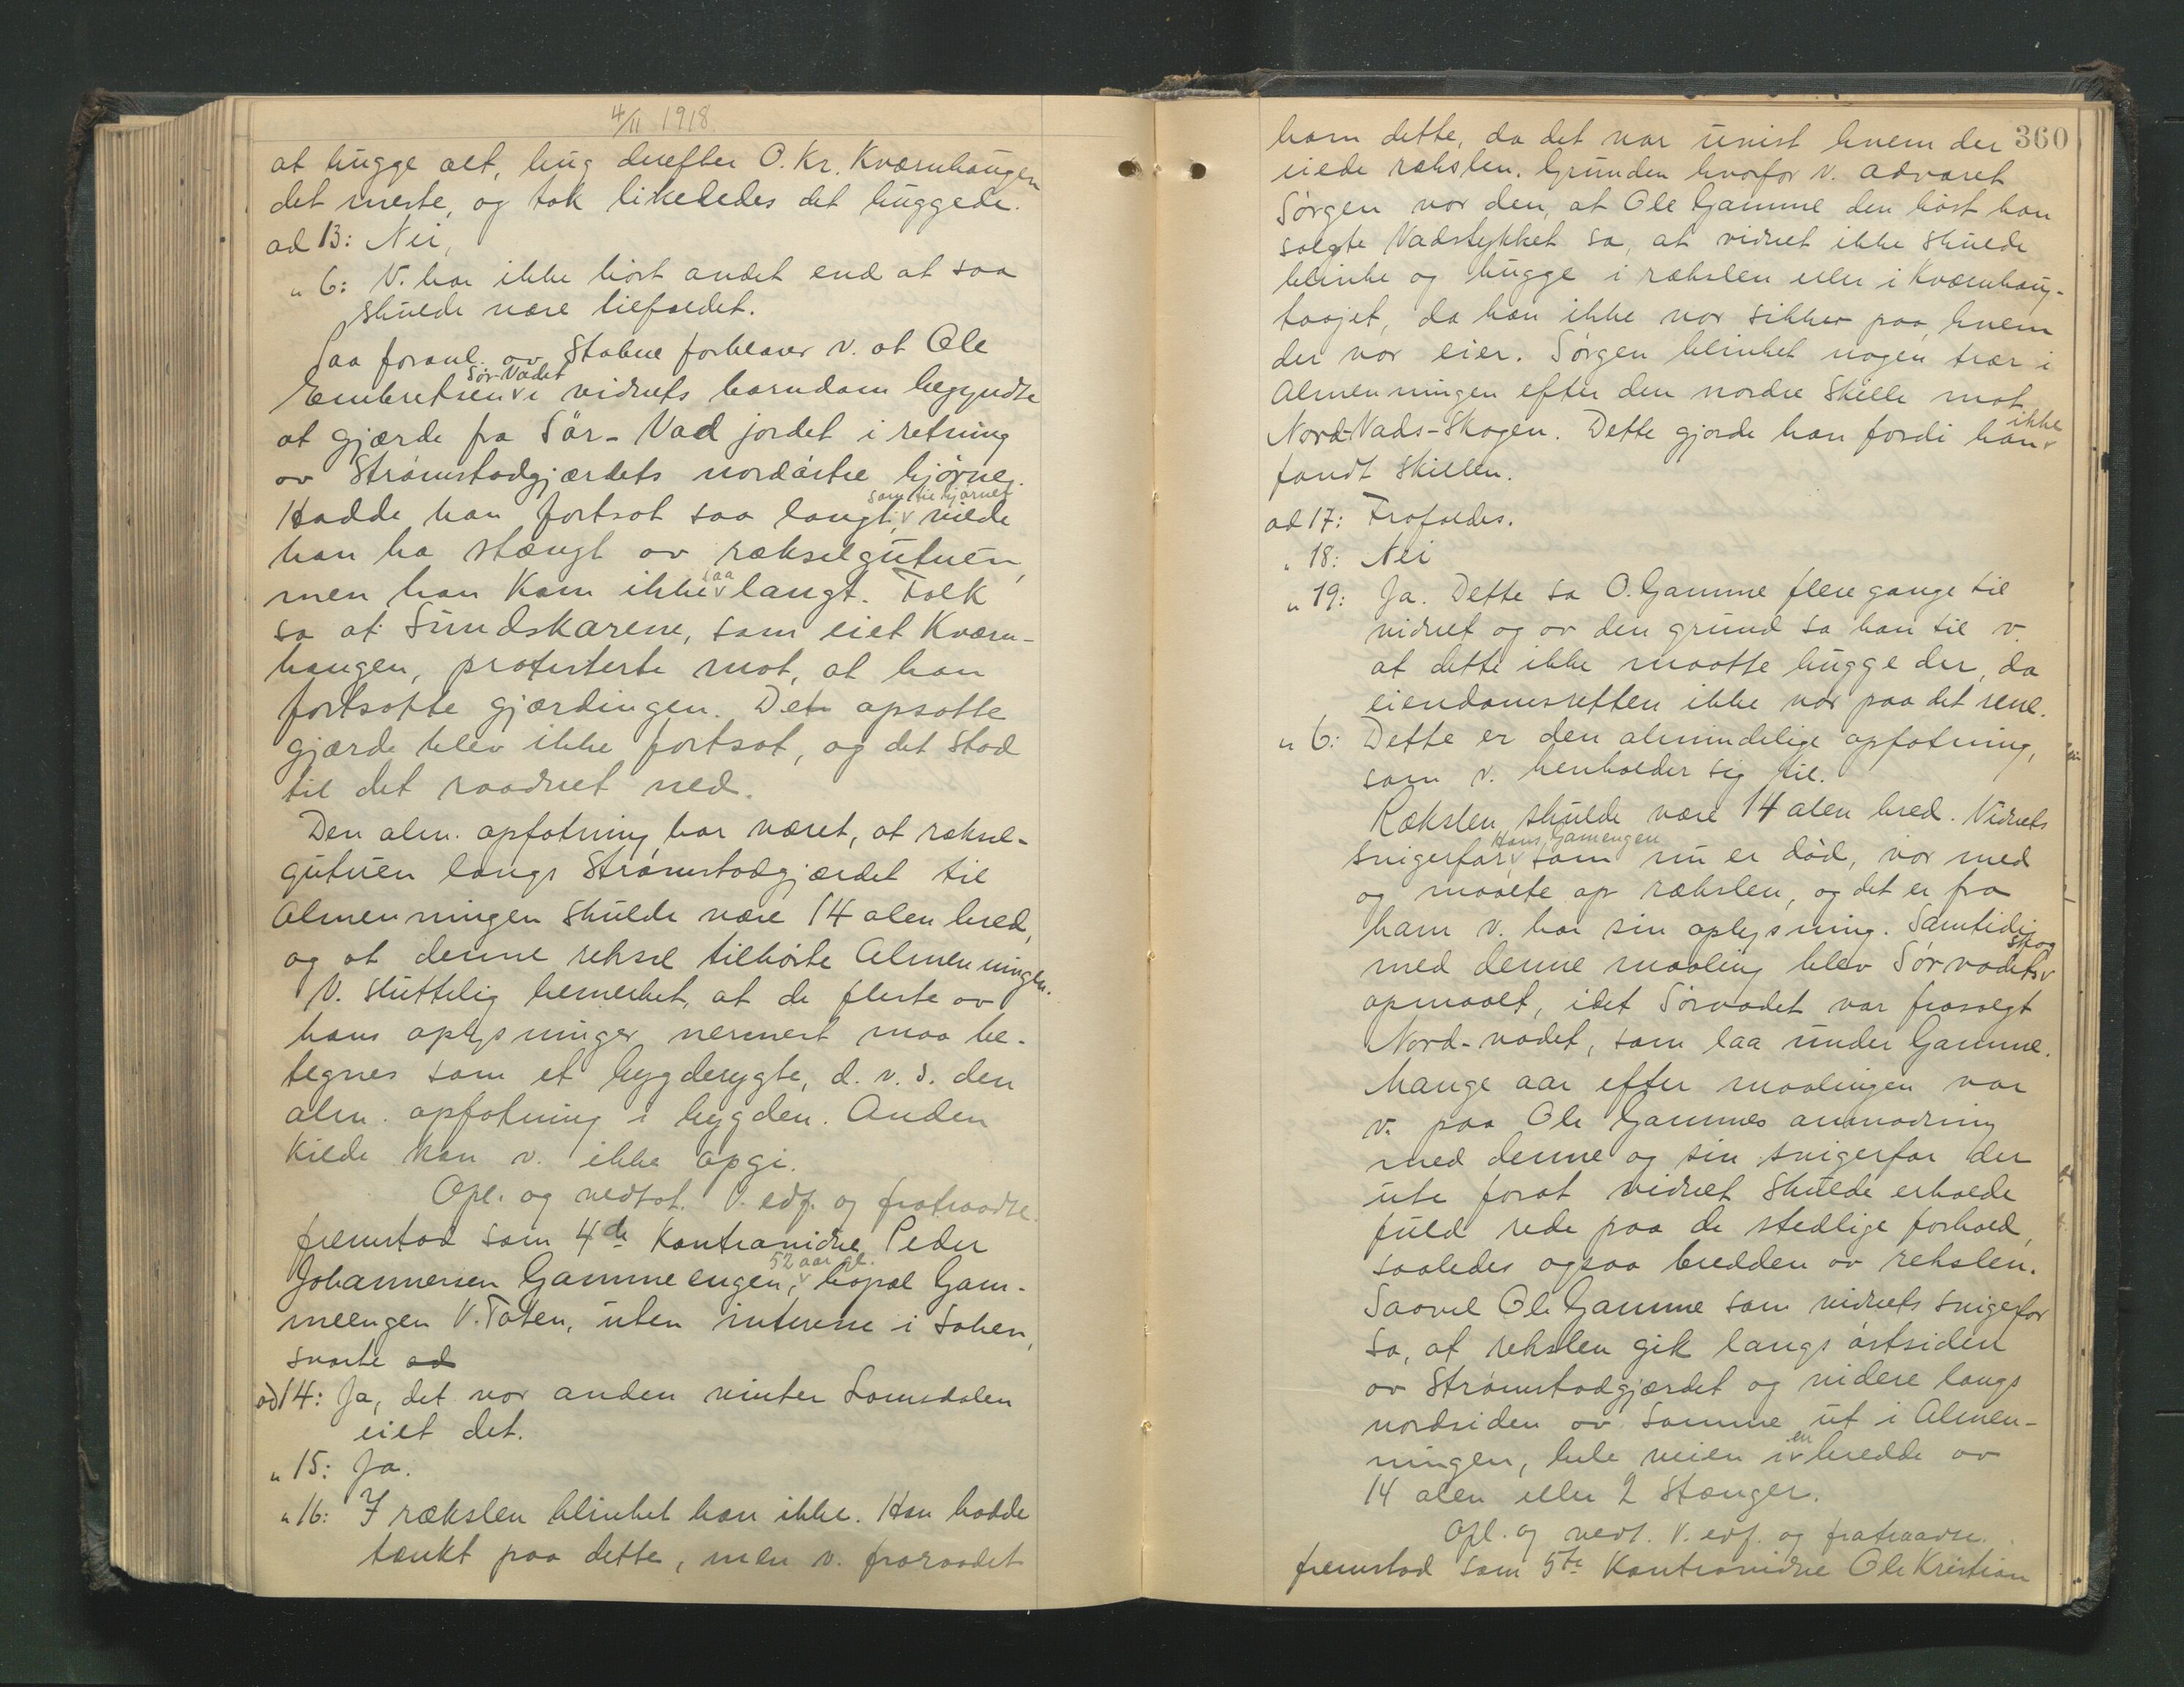 4/11 1918.
at hugge alt, hug derefter O. Kr. Kværnhaugen
det meste, og tok likeledes det huggede.
ad 13: Nei,
" 6: V. har ikke hørt andet end at saa
skulde være tilfældet.
Paa foranl. av Stabne forklarer v. at Ole
Sør-Vadet
Embretsen v i vidnets barndom begyndte
at gjærde fra Sør-Vad jordet i retning
av Strømstadgjærdets nordøstre hjørne.
som til hjørnet
Hadde han fortsat saa langt, v vilde
han ha stængt av rækselgutuen,
saa
men han kom ikke v langt. Folk
sa at Sundskarene, som eiet Kværn-
haugen, protesterte mot, at han
fortsatte gjærdingen. Det opsatte
gjærde blev ikke fortsat, og det stod
til det raadnet ned.
Den alm. opfatning har været, at ræksel-
gutuen langs Strømstadgjærdet til
Almenningen skulde være 14 alen bred,
og at denne reksel tilhørte Almenningen.
V. sluttelig bemerket, at de fleste av
hans oplysninger nærmest maa be-
tegnes som et bygderygte, d. v. s. den
alm. opfatning i bygden. Anden
kilde kan v. ikke opgi.
Opl. og vedtat. V. edf. og fratraadte.
fremstod som 4de Kontravidne Peder
52 aar gl.
Johannessen Gammeengen, v bopæl Gam-
meengen V. Toten, uten interesse i saken,
svarte ad
ad 14: Ja, det var anden vinter Lomsdalen
eiet det.
" 15: Ja.
" 16: I rækslen blinket han ikke. Han hadde
tænkt paa dette, men v. fraraadet
360
ham dette, da det var uvist hvem der
eiede rækslen. Grunden hvorfor v. advaret
Sørgen var den, at Ole Gamme den høst han
solgte Vadstykket sa, at vidnet ikke skulde
blinke og hugge i rækslen eller i Kværnhaug-
taajet, da han ikke var sikker paa, hvem
der var eier. Sørgen blinket nogen trær i
Almenningen efter den nordre Skille mot
ikke
Nord-Vads-Skogen. Dette gjorde han fordi han v
fandt skillen.
ad 17: Frafaldes.
" 18: Nei
" 19: Ja. Dette sa O. Gamme flere gange til
vidnet og av den grund sa han til v.
at dette ikke maatte hugge der, da
eiendomsretten ikke var paa det rene.
" 6: Dette er den almindelige opfatning,
som v. henholder sig til.
Rækslen skulde være 14 alen bred. Vidnets
Hans Gamengen
svigerfar, v som nu er død, var med
og maalte op rækslen, og det er fra
ham v. har sin oplysning. Samtidig
skog
med denne maaling blev Sørvadets v
opmaalt, idet Sørvadet var frasolgt
Nord-vadet, som laa under Gamme.
Mange aar efter maalingen var
v. paa Ole Gammes anmodning
med denne og sin svigerfar der
ute forat vidnet skulde erholde
fuld rede paa de stedlige forhold,
saaledes ogsaa bredden av rekslen.
Saavel Ole Gamme som vidnets svigerfar
sa, at rekslen gik langs østsiden
av Strømstadgjærdet og videre langs
nordsiden av samme ut i Almen-
en
ningen, hele veien i v bredde av
14 alen eller 2 stænger.
Opl. og vedt. V. edf. og fratraadte.
fremstod som 5te Kontravidne Ole Kristian